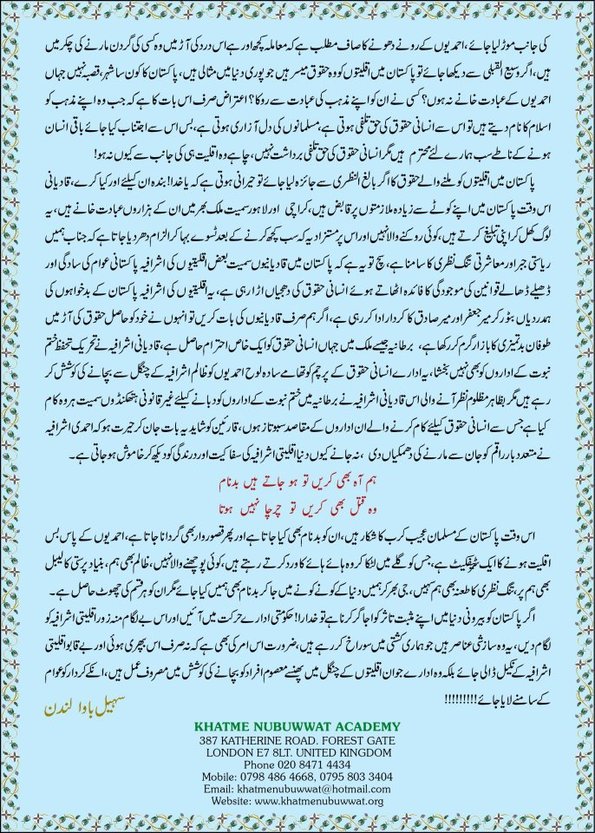 کی جانب موڑ لیا جائے، احمدیوں کے رونے دھونے کا صاف مطلب ہے کہ معاملہ کچھ اور ہے اس درد کی آڑ میں وہ کسی کی گردن مارنے کی چکر میں
ہیں، اگر وسیع القلبی سے دیکھا جائے تو پاکستان میں اقلیتوں کو وہ حقوق میسر ہیں جو پوری دنیا میں مثالی ہیں، پاکستان کا کون سا شہر، قصبہ نہیں جہاں
احمدیوں کے عبادت خانے نہ ہوں؟ کسی نے ان کو اپنے مذہب کی عبادت سے روکا؟ اعتراض صرف اس بات کا ہے کہ جب وہ اپنے مذہب کو
اسلام کا نام دیتے ہیں تو اس سے انسانی حقوق کی حق تلفی ہوتی ہے، مسلمانوں کی دل آزاری ہوتی ہے، بس اس سے اجتناب کیا جائے باقی انسان
ہونے کے ناطے سب ہمارے لئے محترم ہیں مگر انسانی حقوق کی حق تلفی برداشت نہیں، چاہے وہ اقلیت ہی کی جانب سے کیوں نہ ہو!
پاکستان میں اقلیتوں کو ملنے والے حقوق کا اگر بالغ النظری سے جائزہ لیا جائے تو حیرانی ہوتی ہے کہ یا خدا! بندہ ان کیلئے اور کیا کرے، قادیانی
اس وقت پاکستان میں اپنے کوٹے سے زیادہ ملازمتوں پر قابض ہیں، کراچی اور لاہور سمیت ملک بھر میں ان کے ہزاروں عبادت خانے ہیں، یہ
لوگ کھل کر اپنی تبلیغ کرتے ہیں، کوئی روکنے والا نہیں اور اس پر مستزاد یہ کہ سب کچھ کرنے کے بعد ٹسوے بہا کر الزام دھر دیا جاتا ہے کہ جناب ہمیں
ریاستی جبر اور معاشرتی تنگ نظری کا سامنا ہے، سچ تو یہ ہے کہ پاکستان میں قادیانیوں سمیت بعض اقلیتوں کی اشرافیہ پاکستانی عوام کی سادگی اور
ڈھیلے ڈھالے قوانین کی موجودگی کا فائدہ اٹھاتے ہوئے انسانی حقوق کی دھجیاں اڑا رہی ہے، یہ اقلیتوں کی اشرافیہ پاکستان کے بدخواہوں کی
ہمدردیاں بٹور کر میر جعفر اور میر صادق کا کردار ادا کر رہی ہے، اگر ہم صرف قادیانیوں کی بات کریں تو انہوں نے خود کو حاصل حقوق کی آڑ میں
طوفان بدتمیزی کا بازار گرم کر رکھا ہے، برطانیہ جیسے ملک میں جہاں انسانی حقوق کو ایک خاص احترام حاصل ہے، قادیانی اشرافیہ نے تحریک تحفظ ختم
نبوت کے اداروں کو بھی نہیں بخشا، یہ ادارے انسانی حقوق کے پرچم کو تھامے سادہ لوح احمدیوں کو ظالم اشرافیہ کے چنگل سے بچانے کی کوشش کر
رہے ہیں مگر بظاہر مظلوم نظر آنے والی اس قادیانی اشرافیہ نے برطانیہ میں ختم نبوت کے اداروں کو دبانے کیلئے غیر قانونی ہتھکنڈوں سمیت ہر وہ کام
کیا ہے جس سے انسانی حقوق کیلئے کام کرنے والے ان اداروں کے مقاصد سبوتاژ ہوں، قارئین کو شاید یہ بات جان کر حیرت ہو کہ احمدی اشرافیہ
نے متعدد بار راقم کو جان سے مارنے کی دھمکیاں دی، نہ جانے کیوں دنیا اقلیتی اشرافیہ کی سفاکیت اور درندگی کو دیکھ کر خاموش ہو جاتی ہے۔
ہم آہ بھی کریں تو ہو جاتے ہیں بدنام
وہ قتل بھی کریں تو چرچا نہیں ہوتا
اس وقت پاکستان کے مسلمان عجیب کرب کا شکار ہیں، ان کو بدنام بھی کیا جاتا ہے اور پھر قصوروار بھی گردانا جاتا ہے، احمدیوں کے پاس بس
اقلیت ہونے کا ایک سرٹیفکیٹ ہے، جس کو گلے میں لٹکا کر وہ ہائے ہائے کا ورد کرتے رہتے ہیں، کوئی پوچھنے والا نہیں، ظالم بھی ہم، بنیاد پرستی کا لیبل
بھی ہم پر، تنگ نظری کا طعنہ بھی ہم سہیں، جی بھر کر ہمیں دنیا کے کونے کونے میں جا کر بدنام بھی ہمیں کیا جائے مگر ان کو ہر قسم کی چھوٹ حاصل ہے۔
اگر پاکستان کو بیرونی دنیا میں اپنے مثبت تاثر کو اجاگر کرنا ہے تو خدارا! حکومتی ادارے حرکت میں آئیں اور اس بے لگام منہ زور اقلیتی اشرافیہ کو
لگام دیں، یہ وہ سازشی عناصر ہیں جو ہماری کشتی میں سوراخ کر رہے ہیں، ضرورت اس امر کی بھی ہے کہ نہ صرف اس بپھری ہوئی اور بے قابو اقلیتی
اشرافیہ کے نکیل ڈالی جائے بلکہ وہ ادارے جو ان اقلیتوں کے چنگل میں پھنسے معصوم افراد کو بچانے کی کوشش میں مصروف عمل ہیں، انکے کردار کو عوام
کے سامنے لایا جائے!!!!!!!!!
سہیل باوا لندن
KHATME NUBUWWAT ACADEMY
387 KATHERINE ROAD. FOREST GATE
LONDON E7 8LT. UNITED KINGDOM
Phone 020 8471 4434
Mobile: 0798 486 4668, 0795 803 3404
Email: khatmenubuwwat@hotmail.com
Website: www.khatmenubuwwat.org